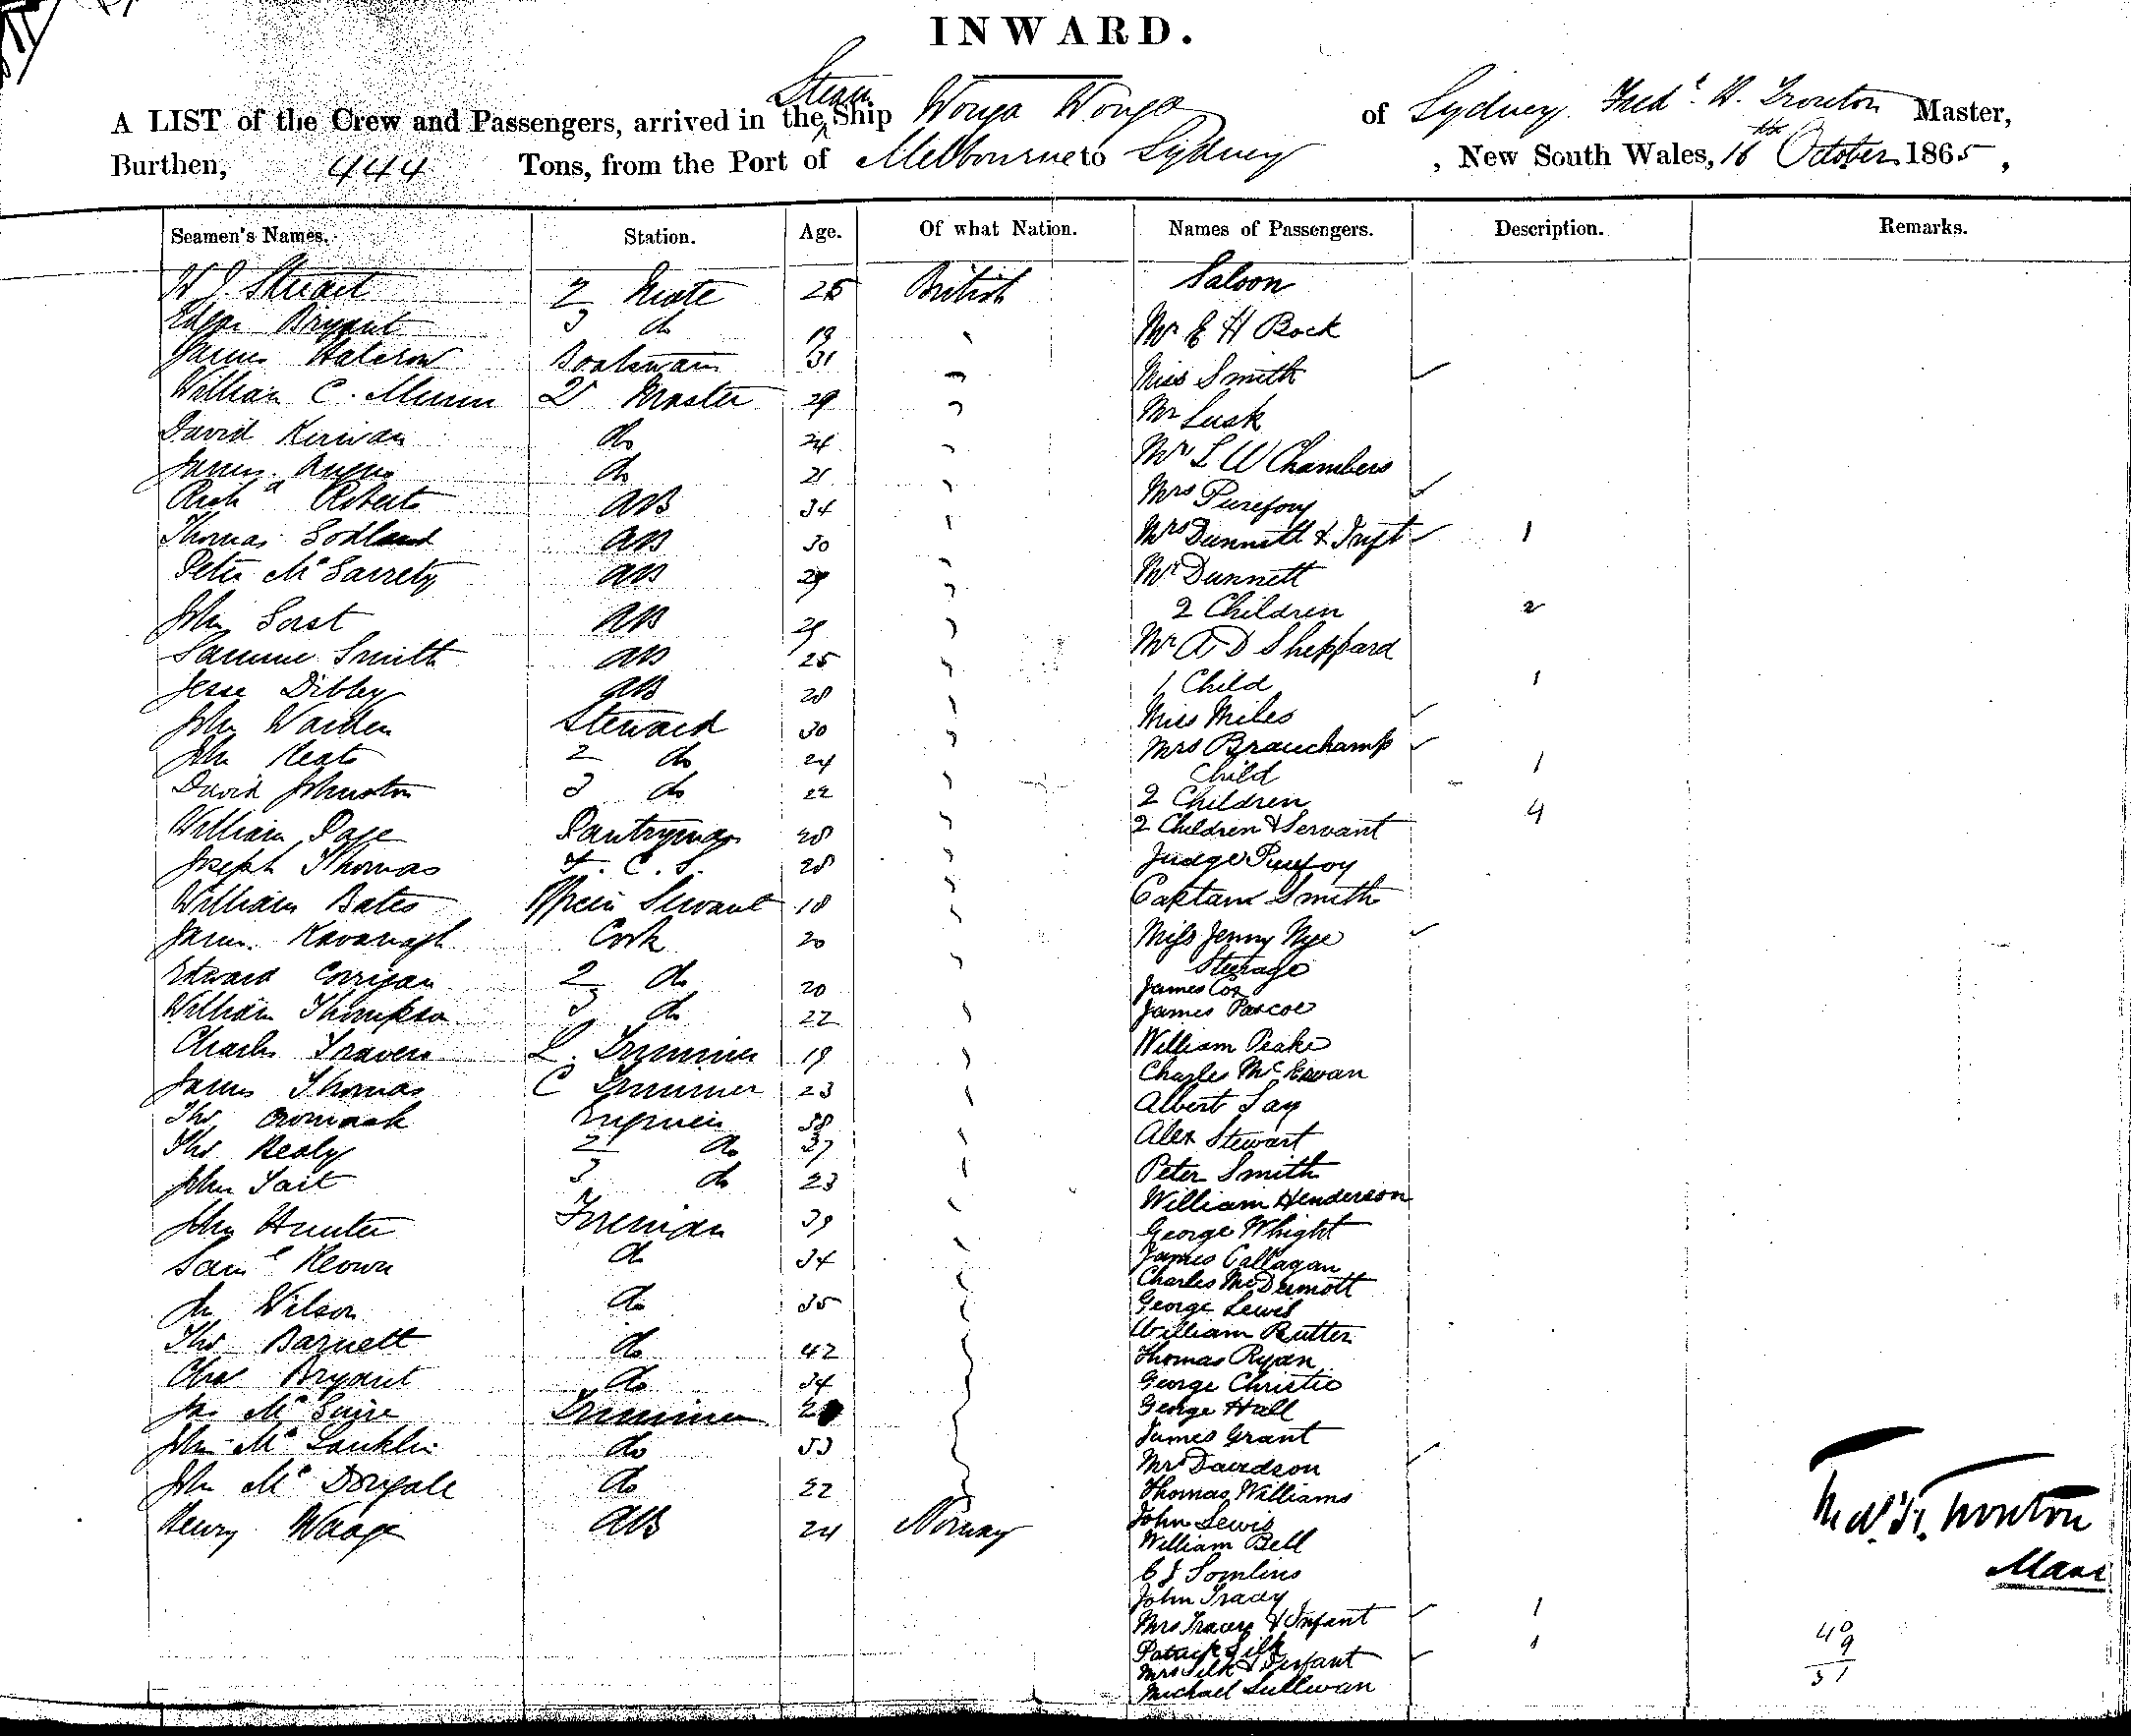 INWARD.
A LIST of the Crew and Passengers, arrived in the Steam Ship Wonga Wonga of Sydney Fredk. W. Trouton Master,
Burthen, 444 Tons, from the Port of Melbourne to Sydney, New South Wales, 16th October 1865,
Seamen's Names. Station. Age. Of what Nation. Names of Passengers. Description. Remarks.
Stuart 2 Mate 25 British
Edgar Bryant 3 do 19
James Halcrow Boatswain 31
William C. Munn Q Master 29
David Kirwan do 24
James Angus do 21
Richd Roberts AB 34
Thomas AB 30
Peter McGarrety AB 29
John AB 29
Smith AB 25
Jesse Dibley AB 28
John Warden Steward 30
John Keats 2 do 24
David Johnston 3 do 22
William Page Pantryman 28
Joseph Thomas F. C. S. 28
William Bates Servant 18
James Kavanagh Cook 20
Edward Corrigan 2 do 20
William Thompson 3 do 22
Charles Travers L. Trimmer 19
James Thomas C Trimmer 23
Thos Cromack Engineer 38
Thos Healy 2 do 37
John Tait 3 do 23
John Hunter Fireman 39
Saml Keown do 34
Jn Wilson do 35
Thos Barnett do 42
Chas Bryant do 34
Jas McGuire Trimmer
John McLauklin do 33
John McDougall do 22
Henry Waage AB 24 Norway
Saloon
Mr E H Bock
Miss Smith
Mr Lusk
Mr L W Chambers
Mrs Purefoy
Mrs Dunnett & Inft 1
Mr Dunnett
2 Children 2
Mr A D Sheppard
1 Child 1
Miss Miles
Mrs Brauchamp
Child 1
2 Children
2 Children & Servant 4
Judge Purefoy
Captain Smith
Miss Jenny Nye
Steerage
James Cox
James Pascoe
William Peake
Charles McEwan
Albert Lay
Alex Stewart
Peter Smith
William Henderson
George Whight
James Callagan
Charles McDermott
George Lewis
William Rutter
Thomas Ryan
George Christie
George Hall
James Grant
Mrs Davidson
Thomas Williams
John Lewis
William Bell
C J Tomlins
John Tracey
Mrs Tracey & Infant 1
Patrick Silk
Mrs Silk & Infant 1
Michael Sullivan
Trouton
Mas